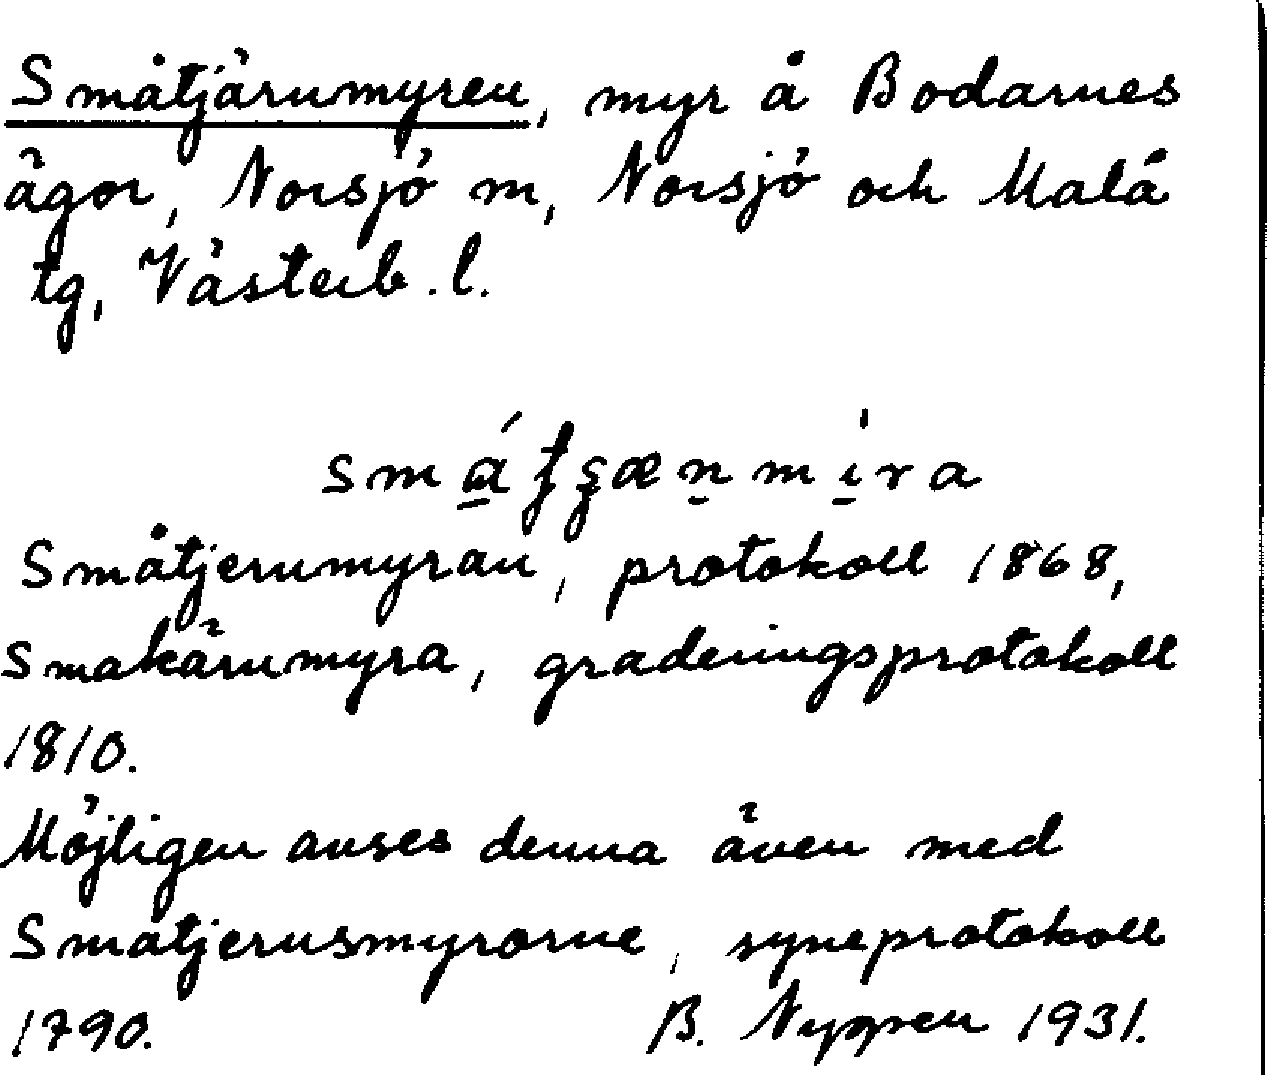 Småtjärnmyren, myr å Bodarnes
ägor, Norsjö sn, Norsjö och Malå
tg, Västerb. l.
Småtjernmyran, protokoll 1868,
Smakärnmyra, graderingsprotokoll
1810.
Möjligen avses denna även med
Småtjernsmyrorne, syneprotokoll
1790. B. Nygren 1931.